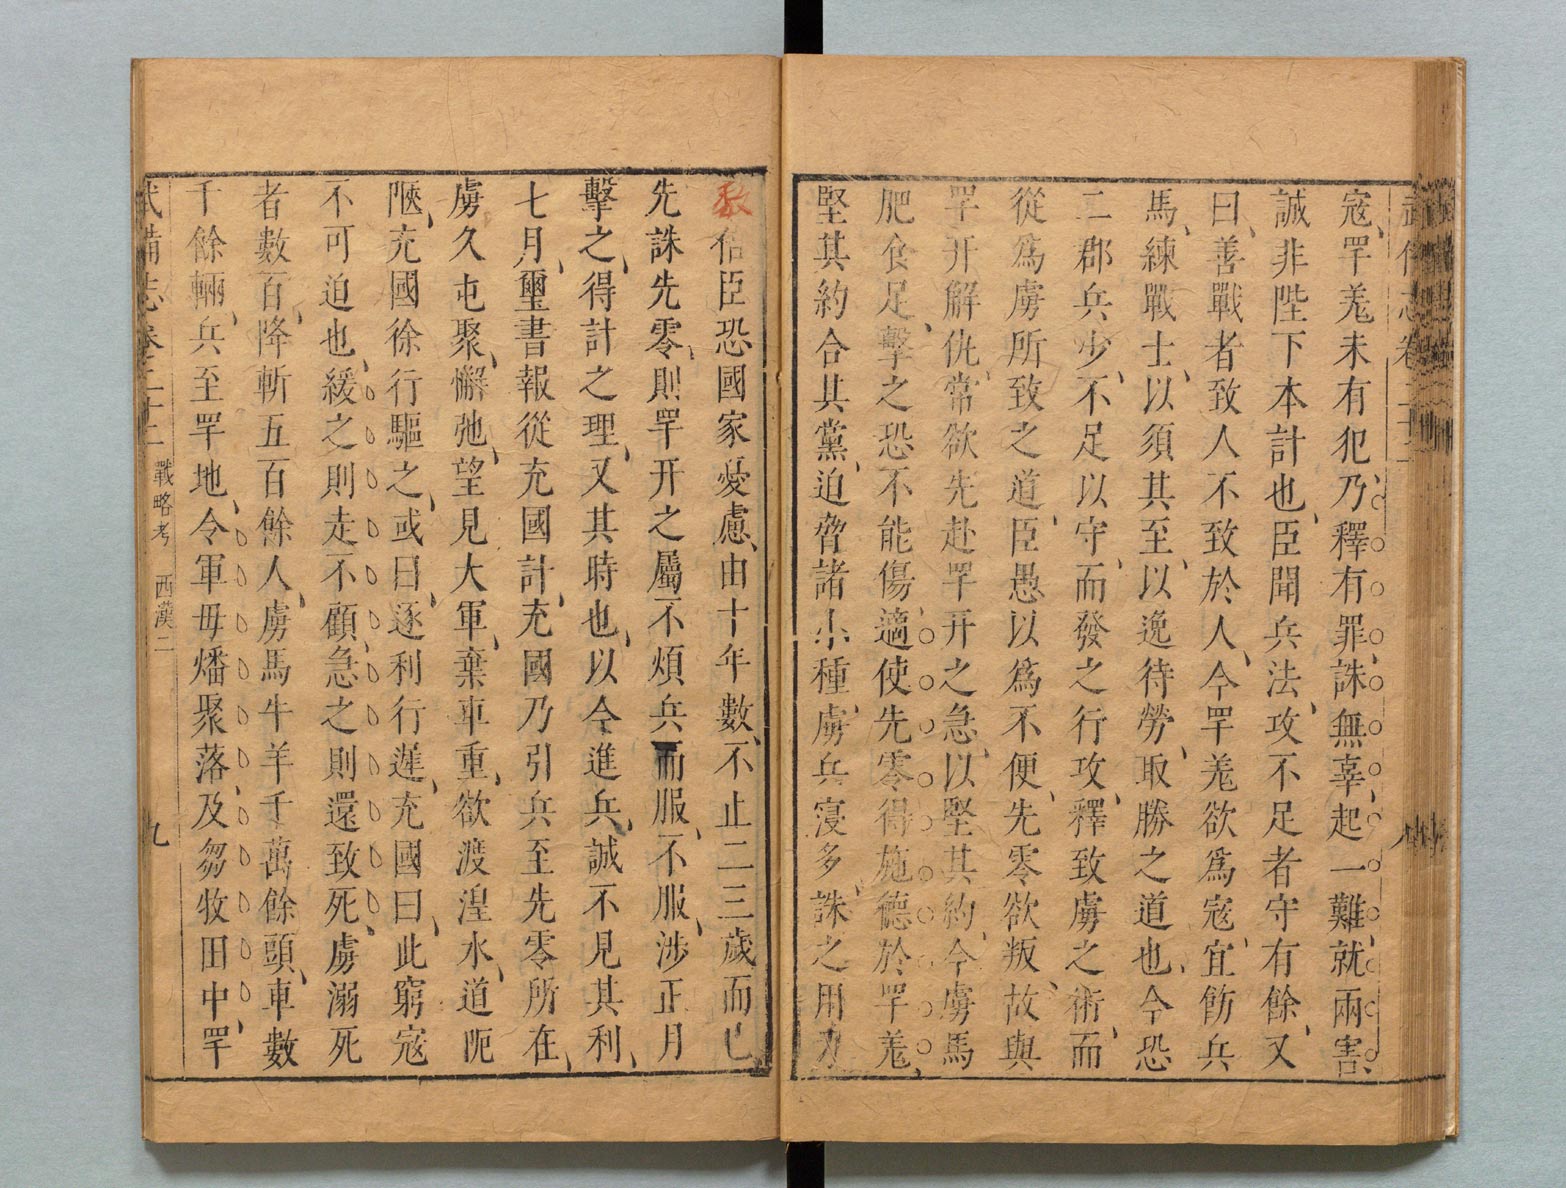 武備志卷二十二
寇、罕羌未有犯、乃釋有罪、誅無辜、起一難、就兩害、
誠非陛下本計也、臣聞兵法、攻不足者守有餘、又
曰、善戰者致人不致於人、今罕羌欲爲寇、宜飭兵
馬、練戰士、以須其至、以逸待勞、取勝之道也、今恐
二郡兵少、不足以守、而發之行攻、釋致虜之術、而
從爲虜所致之道、臣愚以爲不便、先零欲叛、故與
罕幵解仇、常欲先赴罕幵之急、以堅其約、今虜馬
肥食足、擊之恐不能傷、適使先零得施德於罕羌、
堅其約合其黨、迫脅諸小種、虜兵寖多、誅之用力
數倍臣恐國家憂慮、由十年數、不止二三歲而已
先誅先零、則罕幵之屬不煩兵而服、不服、涉正月
擊之、得計之理、又其時也、以今進兵、誠不見其利、
七月、璽書報從充國計、充國乃引兵至先零所在、
虜久屯聚、懈弛、望見大軍、棄車重、欲渡湟水、道阨
陿、充國徐行驅之、或曰、逐利行遲、充國曰、此窮寇
不可迫也、緩之則走不顧、急之則還致死、虜溺死
者數百、降斬五百餘人、虜馬牛羊千萬餘頭、車數
千餘輛、兵至罕地、令軍毋燔聚落、及芻牧田中、罕
武備志卷二十二 戰略考 西漢二 九